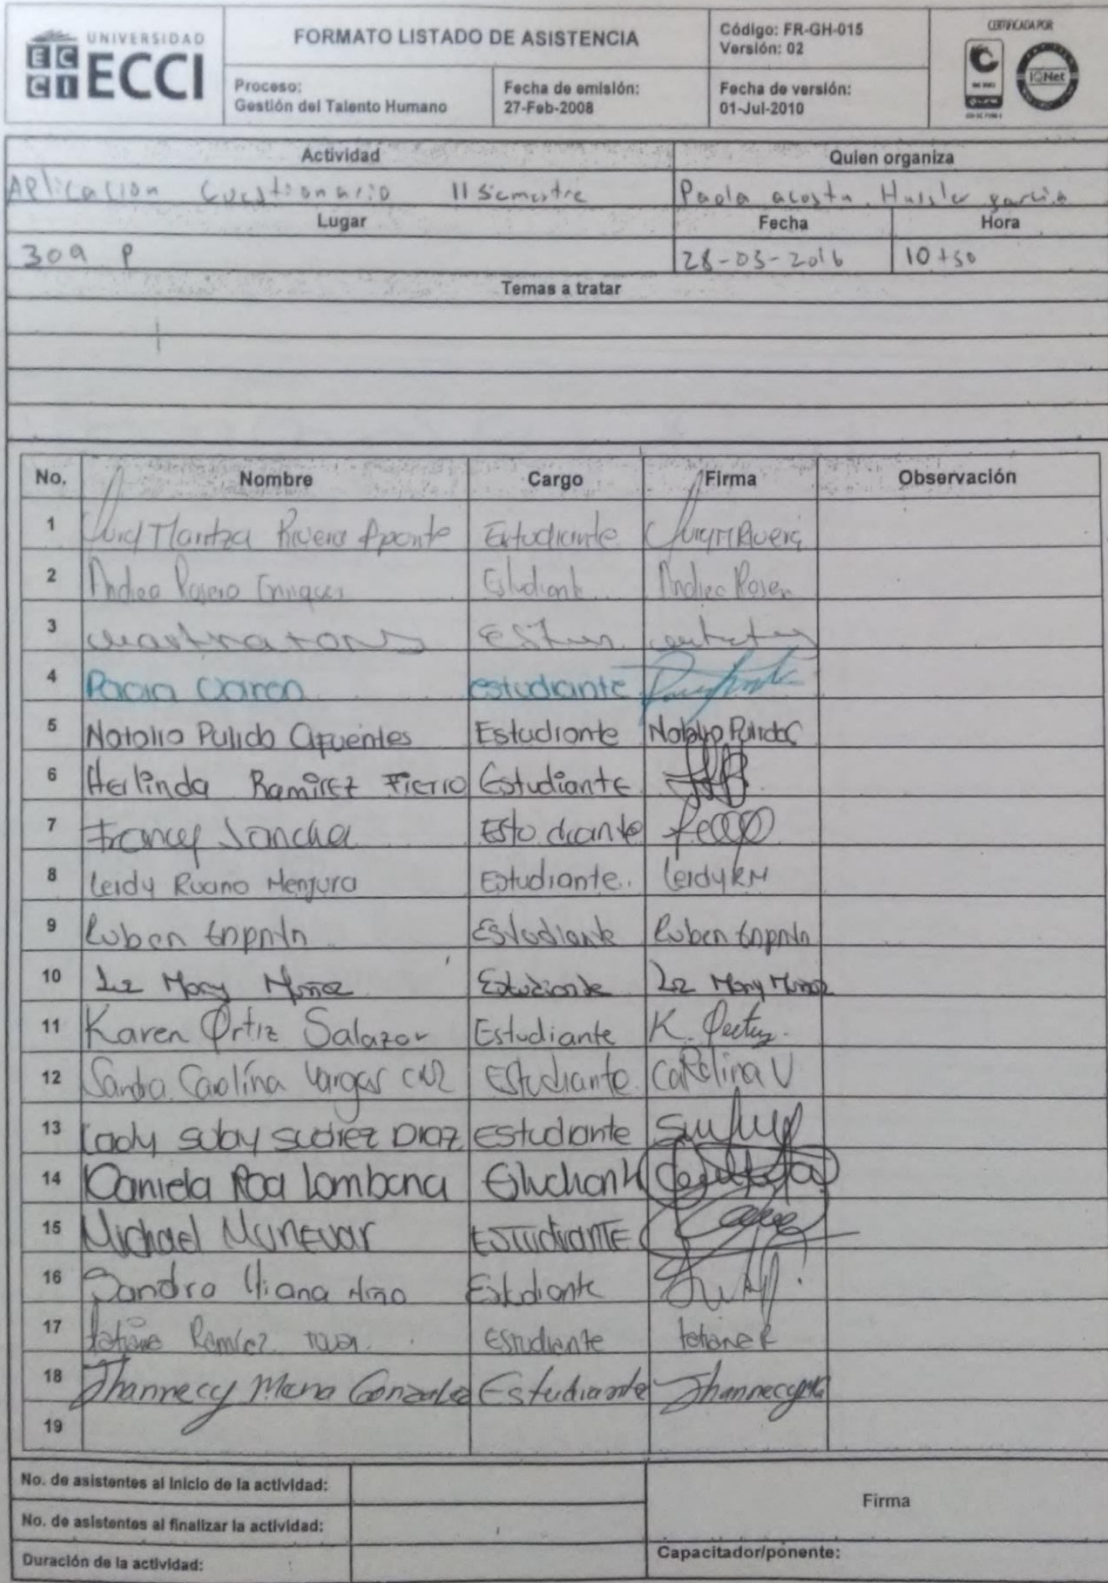 UNIVERSIDAD
ECCI
FORMATO LISTADO DE ASISTENCIA
Código: FR-GH-015
Versión: 02
CERTIFICADA POR
IQNet
Proceso:
Gestión del Talento Humano
Fecha de emisión:
27-Feb-2008
Fecha de versión:
01-Jul-2010
Actividad Quien organiza
Aplicacion Cuestionario II Semestre Paola acosta garcia
Lugar Fecha Hora
309 P 28-03-2016 10+50
Temas a tratar
No. Nombre Cargo Firma Observación
1 Maritza Rivera Aponte Estudiante
2 Andrea Estudiante Andrea
3
4 estudiante
5 Natalia Pulido Cifuentes Estudiante Natalia Pulido C
6 Herlinda Ramirez Fierro Estudiante
7 Francy Sanchez Estudiante
8 Leidy Ruano Menjura Estudiante. Leidy RM
9 Ruben Estudiante Ruben
10 Luz Mary Muñoz Estudiante Luz Mary Muñoz
11 Karen Ortiz Salazar Estudiante K.
12 Sandra Carolina Vargas Estudiante Carolina V
13 Lady suarez Diaz estudiante
14 Daniela Roa Lombana Estudiante
15 Michael Munevar Estudiante
16 Sandra liliana Estudiante
17 tatiana Ramirez Estudiante tatiana R
18 Jhanneccy Maria Gonzalez Estudiante
19
No. de asistentes al inicio de la actividad:
No. de asistentes al finalizar la actividad:
Firma
Duración de la actividad:
Capacitador/ponente: